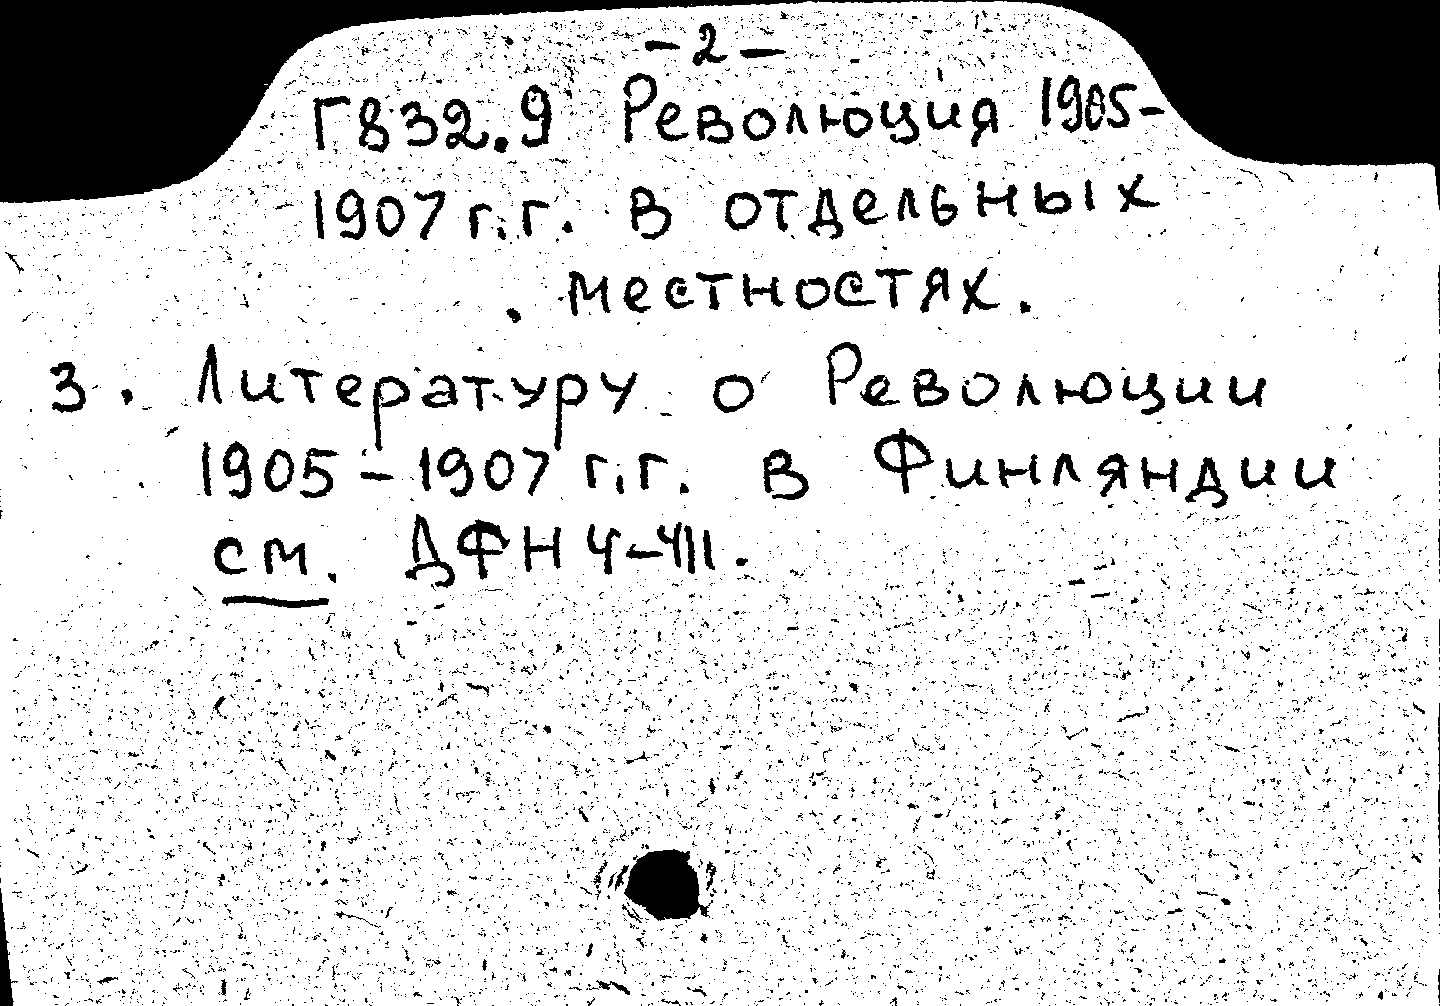 – 2 –
Г832.9 Революция 1905-
1907 г.г. в отдельных
местностях.
3. Литературу о Революции
1905-1907 г.г. в Финляндии
см. ДФН 4-4III.